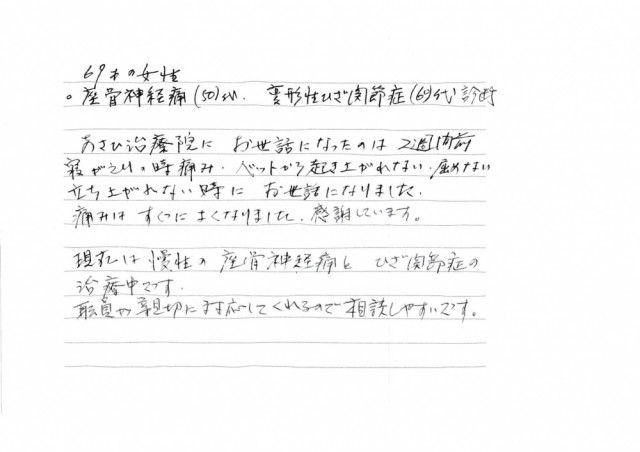 69才の女性
○座骨神経痛(50)代. 変形性ひざ関節症(60)代診断
あさひ治療院に お世話になったのは 2週間前
寝がえりの時痛み.ベットから起き上がれない.屈めない
立ち上がれない時に お世話になりました.
痛みは すぐによくなりました.感謝しています。
現在は慢性の座骨神経痛と ひざ関節症の
治療中です.
職員が親切に対応してくれるので相談しやすいです。